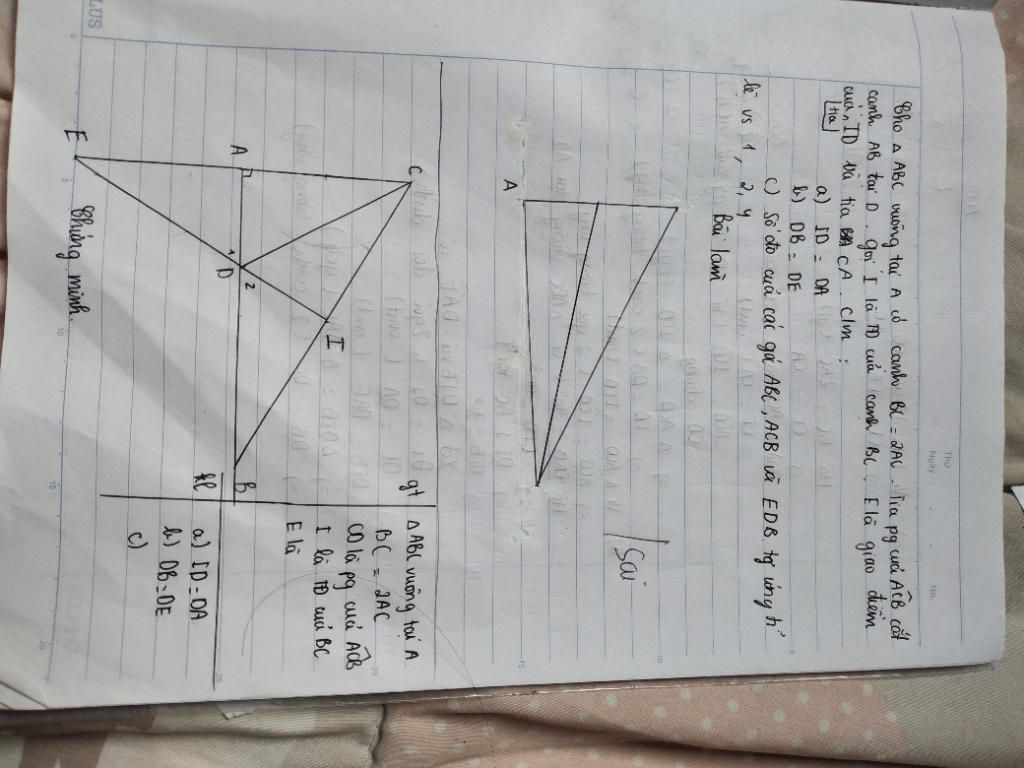 LUS
Thứ
Ngày
No.
Cho △ ABC vuông tại A có cạnh BC = 2AC. Tia pg của ACB cắt
cạnh AB tại D. gọi I là TĐ của cạnh BC, E là giao điểm
của ID và tia CA. C/m :
tia
a) ID = DA
b) DB = DE
c) Số đo của các góc ABC, ACB và EDB tg ứng tỉ
lệ vs 1, 2, 4
Bài làm
A
Sai
C
I
A
1
D
2
B
E
gt
△ ABC vuông tại A
BC = 2AC
CD là pg của ACB
I là TĐ của BC
E là
kl
a) ID = DA
b) DB = DE
c)
Chứng minh.